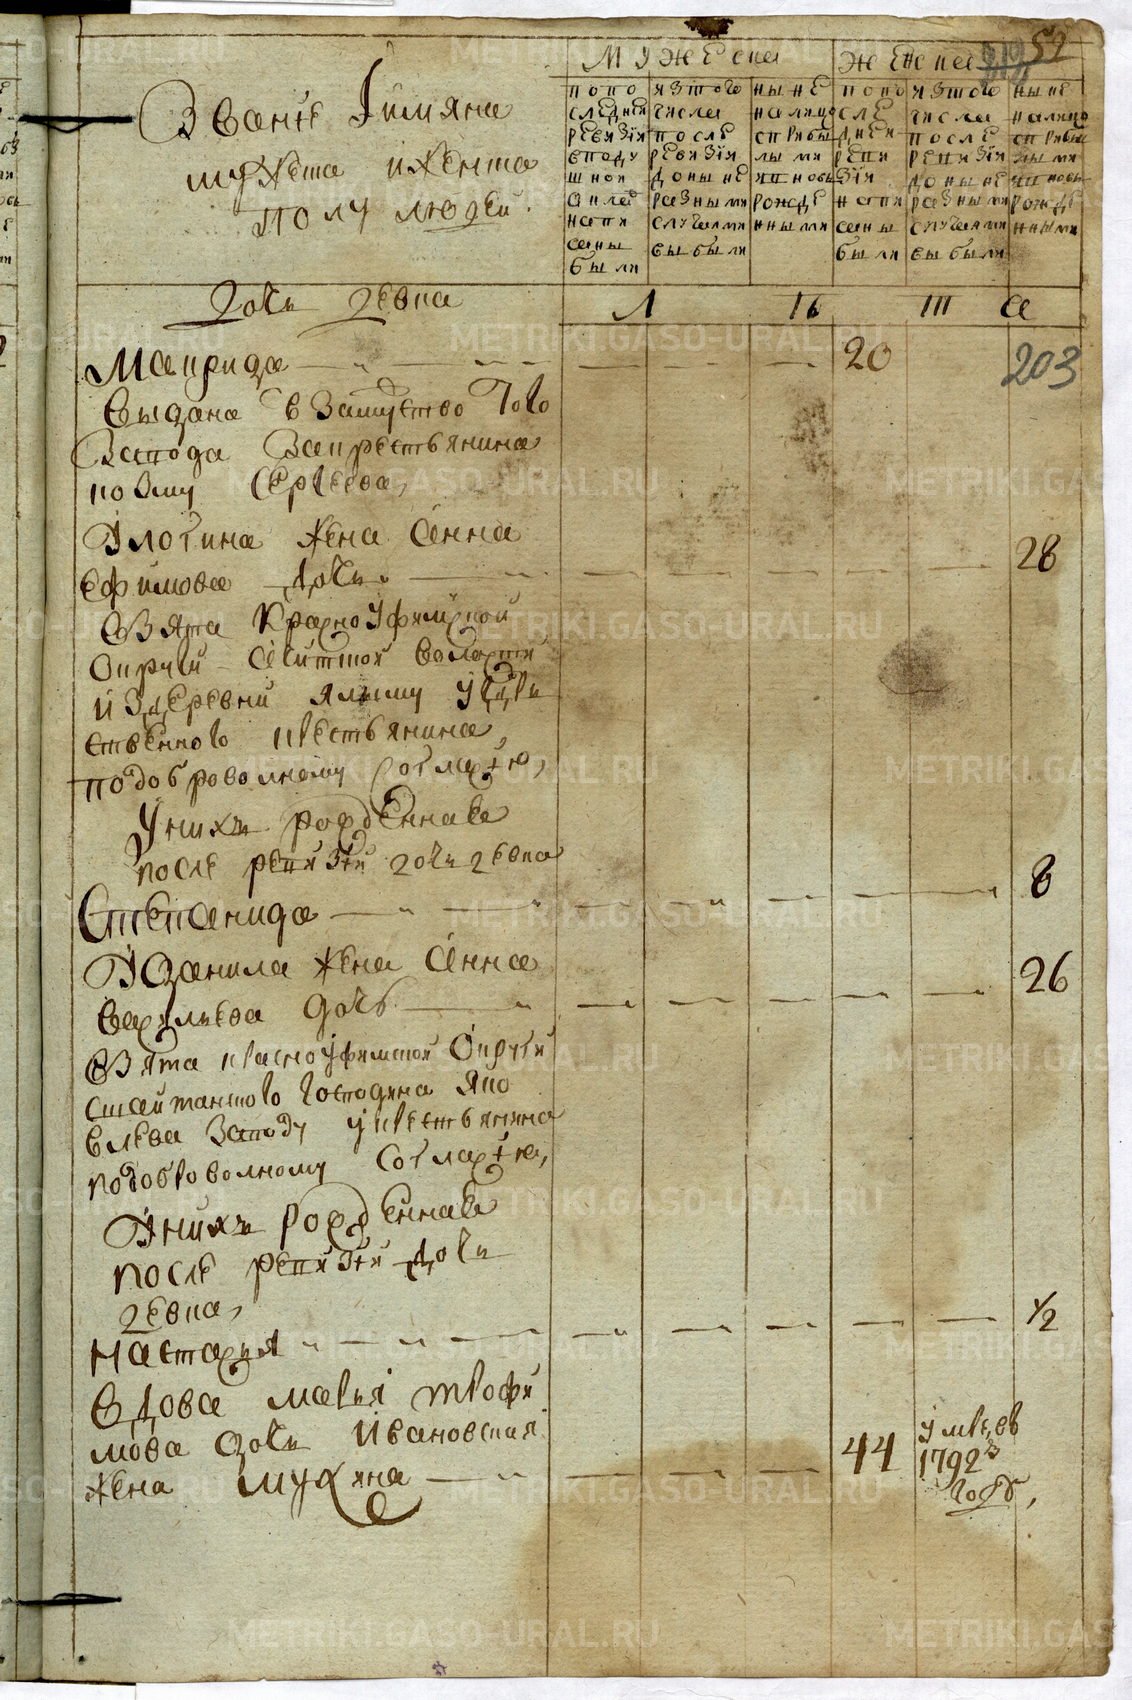 52
Звание Имяна
мужеска и женска
полу людей
Мужеска
Женска
по по
следней
ревизии
в поду
шной
оклад
напи
саны
были
из того
числа
после
ревизии
до ныне
разными
случаями
выбыли
ныне
на лицо
с прибы
лыми
и вновь
рожде
нными
по по
сле
дней
реви
зии
напи
саны
были
из того
числа
после
ревизии
до ныне
разными
случаями
выбыли
ныне
на лицо
с прибы
лыми
и вновь
рожде
нными
дочь девка
203
Маврида 20
выдана в замужство того
завода за крестьянина
Козму Сергеева,
Илотина жена Анна
Ефимова дочь 28
взята Красноуфимской
округи Ачитской волости
из деревни
ственного крестьянина,
по добровольному согласию,
У них рожденная
после ревизии дочь девка
Степанида 8
У Данила жена Анна
Васильева дочь 26
взята красноуфимской округи
сылвинского господина Яко
влева заводу у крестьянина
по добровольному согласию,
У них рожденная
после ревизии дочь
девка,
Настасья 1/2
вдова Марья Трофи
мова дочь Ивановская
жена Лукина 44
умре в
1792м
годе,
METRIKI.GASO-URAL.RU